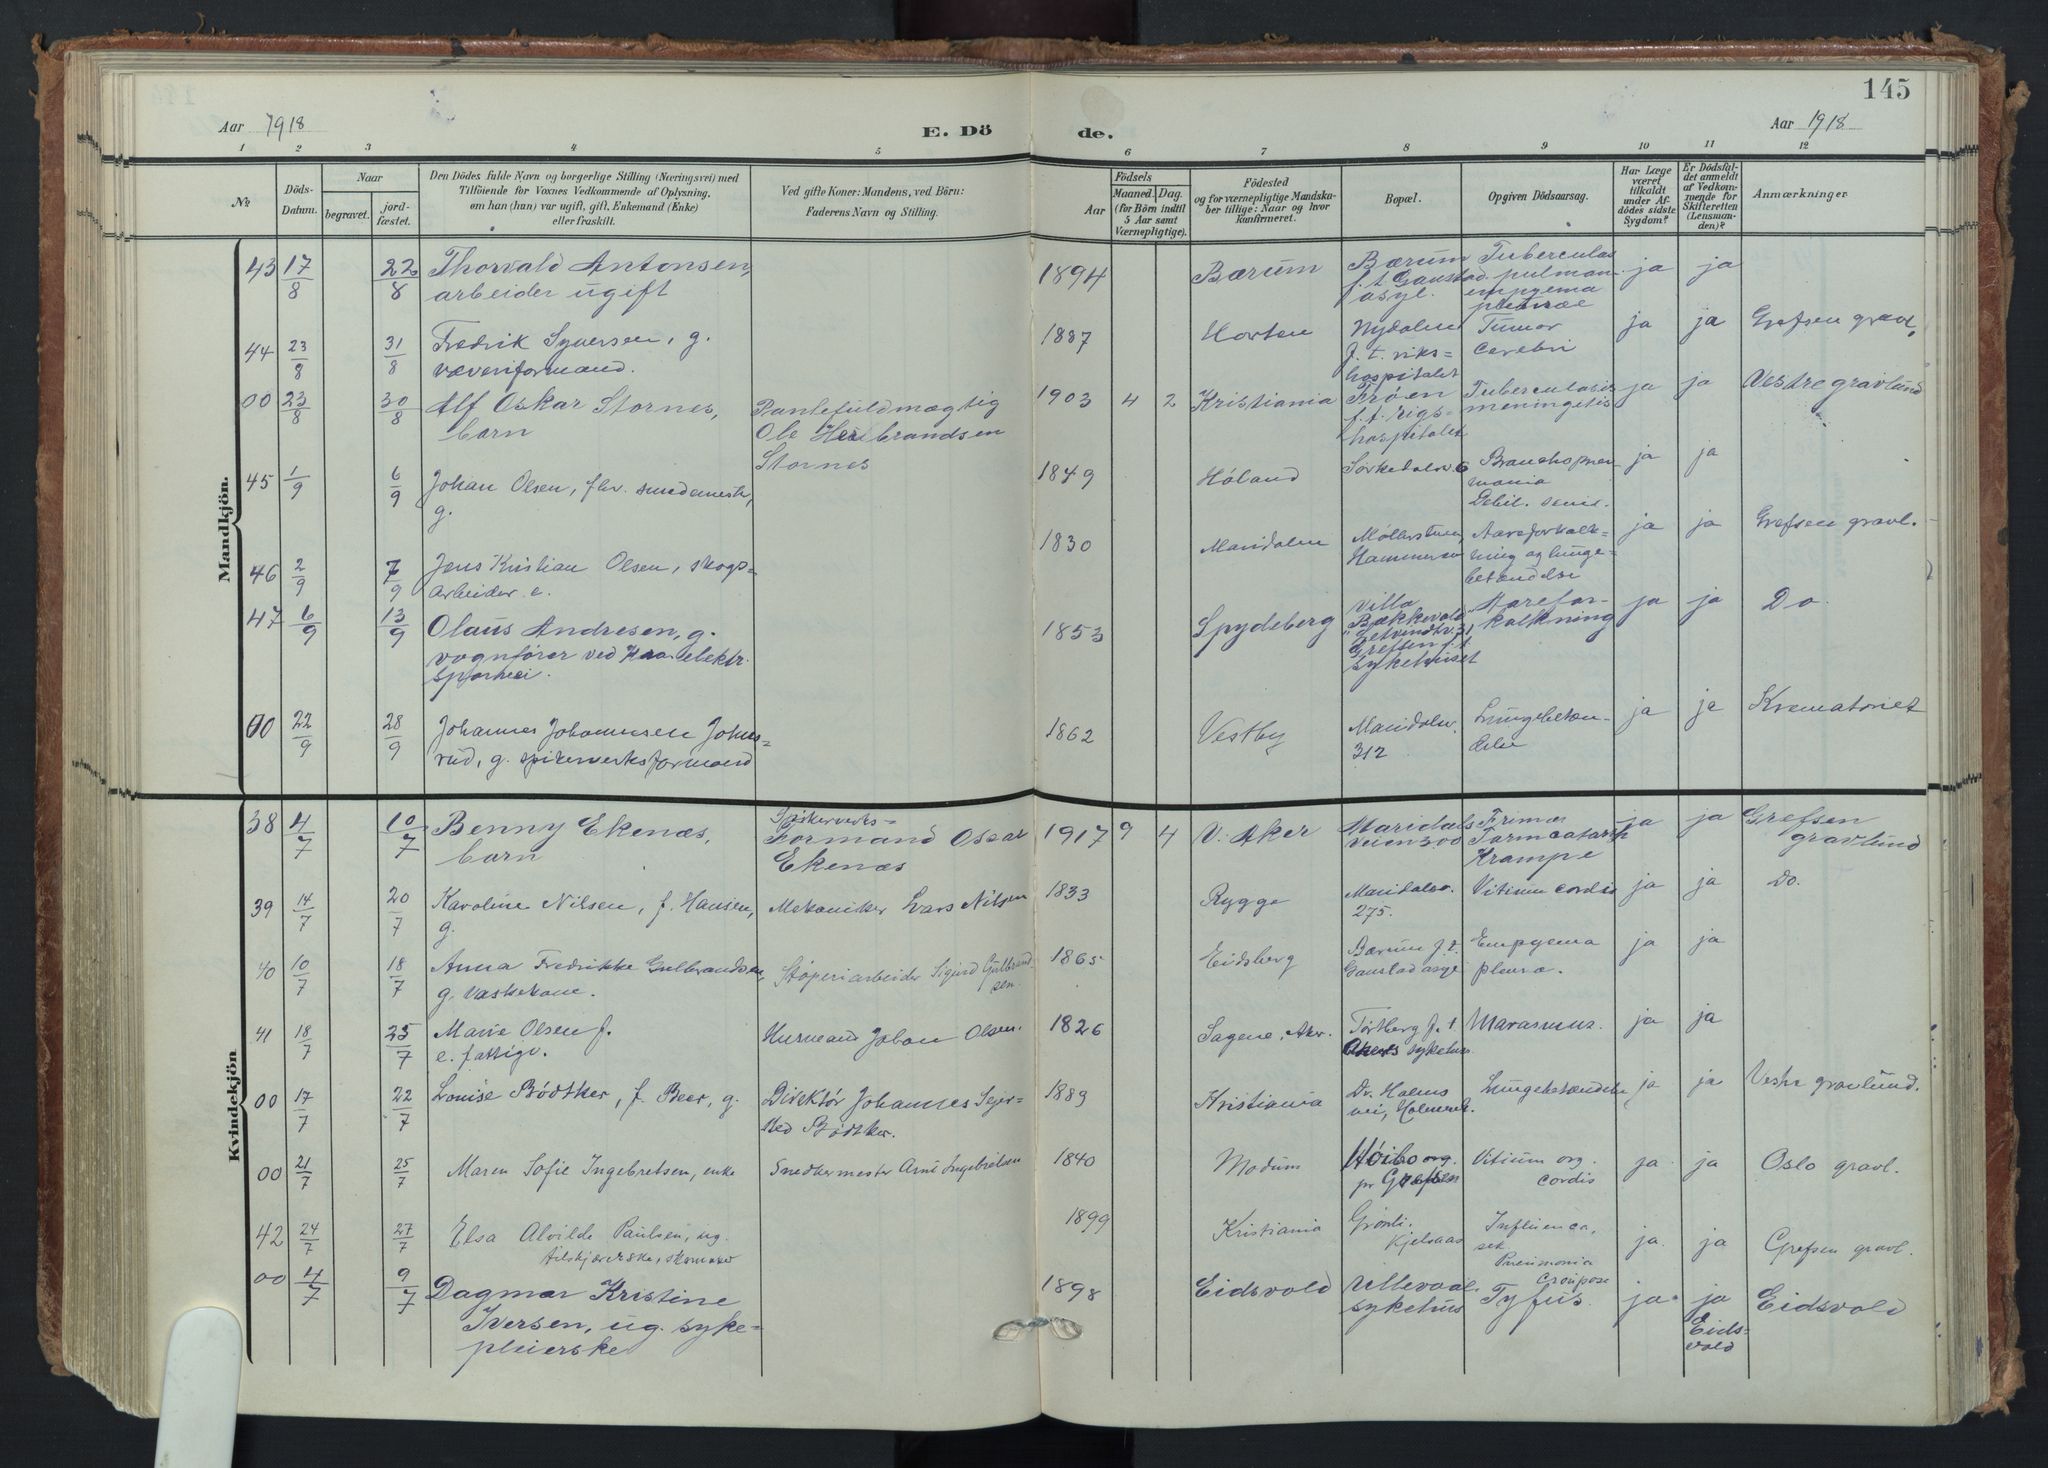 145
Aar 1918
E. Dö
de.
Aar 1918
1 2 3 4 5 6 7 8 9 10 11 12
No
Döds-
Datum.
Naar
begravet.
jord-
fæstet.
Den Dödes fulde Navn og borgerlige Stilling (Næringsvei) med
Tilföiende for Voxnes Vedkommende af Oplysning,
om han (hun) var ugift, gift, Enkemand (Enke)
eller fraskilt.
Ved gifte Koner: Mandens, ved Börn:
Faderens Navn og Stilling.
Födsels
Aar
Maaned. Dag.
(for Börn indtil
5 Aar samt
Værnepligtige).
Födested
og for værnepligtige Mandska-
ber tillige: Naar og hvor
konfirmeret.
Bopæl.
Opgiven Dödsaarsag.
Har Læge
været
tilkaldt
under Af-
dödes sidste
Sygdom?
Er Dödsfal-
det anmeldt
af Vedkom-
mende for
Skifteretten
(Lensman-
den)?
Anmærkninger
Mandkjön.
43 17/8 22/8 Thorvald Antonsen, 1894 Bærum Bærum Tuberculas ja ja
arbeider ugift f.t. Gaustad pulmon.
asyl. empyema
pleuræ
44 23/8 31/8 Fredrik Syversen, g. 1887 Horten Nydalen Tumor ja ja Grefsen gravl.
væveriformand. f.t. riks= cerebri
hospitalet
00 23/8 30/8 Alf Oskar Stornes, Pantefuldmægtig 1903 4 2 Kristiania Frøen Tuberculasis ja ja Vestre gravlund
barn Ole Herbrandsen f.t. rigs= meningitis
Stornes hospitalet
45 1/9 6/9 Johan Olsen, fhv. smedemester, 1849 Høland Sørkedalsv. 6 Bronchopneu ja ja
g. monia
Debil. senis.
46 2/9 7/9 Jens Kristian Olsen, skogs= 1830 Maridalen Møllerstuen, Aareforkalk= ja ja Grefsen gravl.
arbeider. e. Hammeren ning og lunge=
betændelse
47 6/9 13/9 Olaus Andresen, g. 1853 Spydeberg Villa Aarefor- ja ja Do.
vognfører ved Kra. elektr. "Bækkevold" kalkning
sporvei. 31,
Grefsen f.t.
sykehuset
00 22/9 28/9 Johannes Johannesen Johns= 1862 Vestby Maridalsv. Lungebetæn- ja ja Krematoriet
rud, g. spikerverksformand 312 delse
Kvindekjön.
38 4/7 10/7 Benny Ekenæs, Spikerverks= 1917 9 4 V. Aker Maridals Primær ja ja Grefsen
barn Formand Oscar veien 300 Tarmcatarrh gravlund
Ekenæs Krampe
39 14/7 20/7 Karoline Nilsen, f. Hansen, Mekaniker Lars Nilsen 1833 Rygge Maridalsv. Vitium cordis ja ja Do.
g. 275.
40 10/7 18/7 Anna Fredrikke Gulbrandsen, Støperiarbeider Sigurd Gulbrand- 1865 Eidsberg Bærum f.t. Empyema ja ja
g. vaskekone. sen Gaustad asyl pleuræ.
41 18/7 25/7 Marie Olsen f. Husmand Johan Olsen. 1826 Sagene, Aker. Tørtberg f.t. Marasmus. ja ja
e. fattigv. Akers sykehus
00 17/7 22/7 Louise Bødtker, f. Beer, g. Direktør Johannes Sejer- 1889 Kristiania Dr. Holms Lungebetændelse ja ja Vestre gravlund.
sted Bødtker. vei, Holmenk.
00 21/7 25/7 Maren Sofie Ingebretsen, enke Snedkermester Arnt Ingebretsen 1840 Modum Høibo org. Vitium org. ja ja Oslo gravl.
pr Grefsen cordis
42 24/7 27/7 Elsa Alvilde Paulsen, ug. 1899 Kristiania Grønli. Influenca, ja. ja Grefsen gravl.
Kjelsaas sek.
Pneumonia
crouposa
00 4/7 9/7 Dagmar Kristine 1898 Eidsvold Ullevaal Tyfus. ja ja Eidsvold
Iversen, ug. syke= sykehus Eids=
pleierske vold